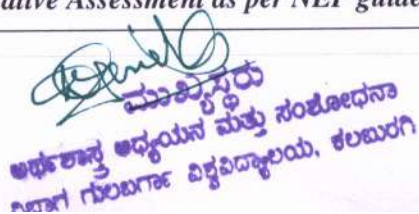 ative Assessment as per NEP guide
ಮುಖ್ಯಸ್ಥರು
ಅರ್ಥಶಾಸ್ತ್ರ ಅಧ್ಯಯನ ಮತ್ತು ಸಂಶೋಧನಾ
ವಿಭಾಗ ಗುಲಬರ್ಗಾ ವಿಶ್ವವಿದ್ಯಾಲಯ, ಕಲಬುರಗಿ